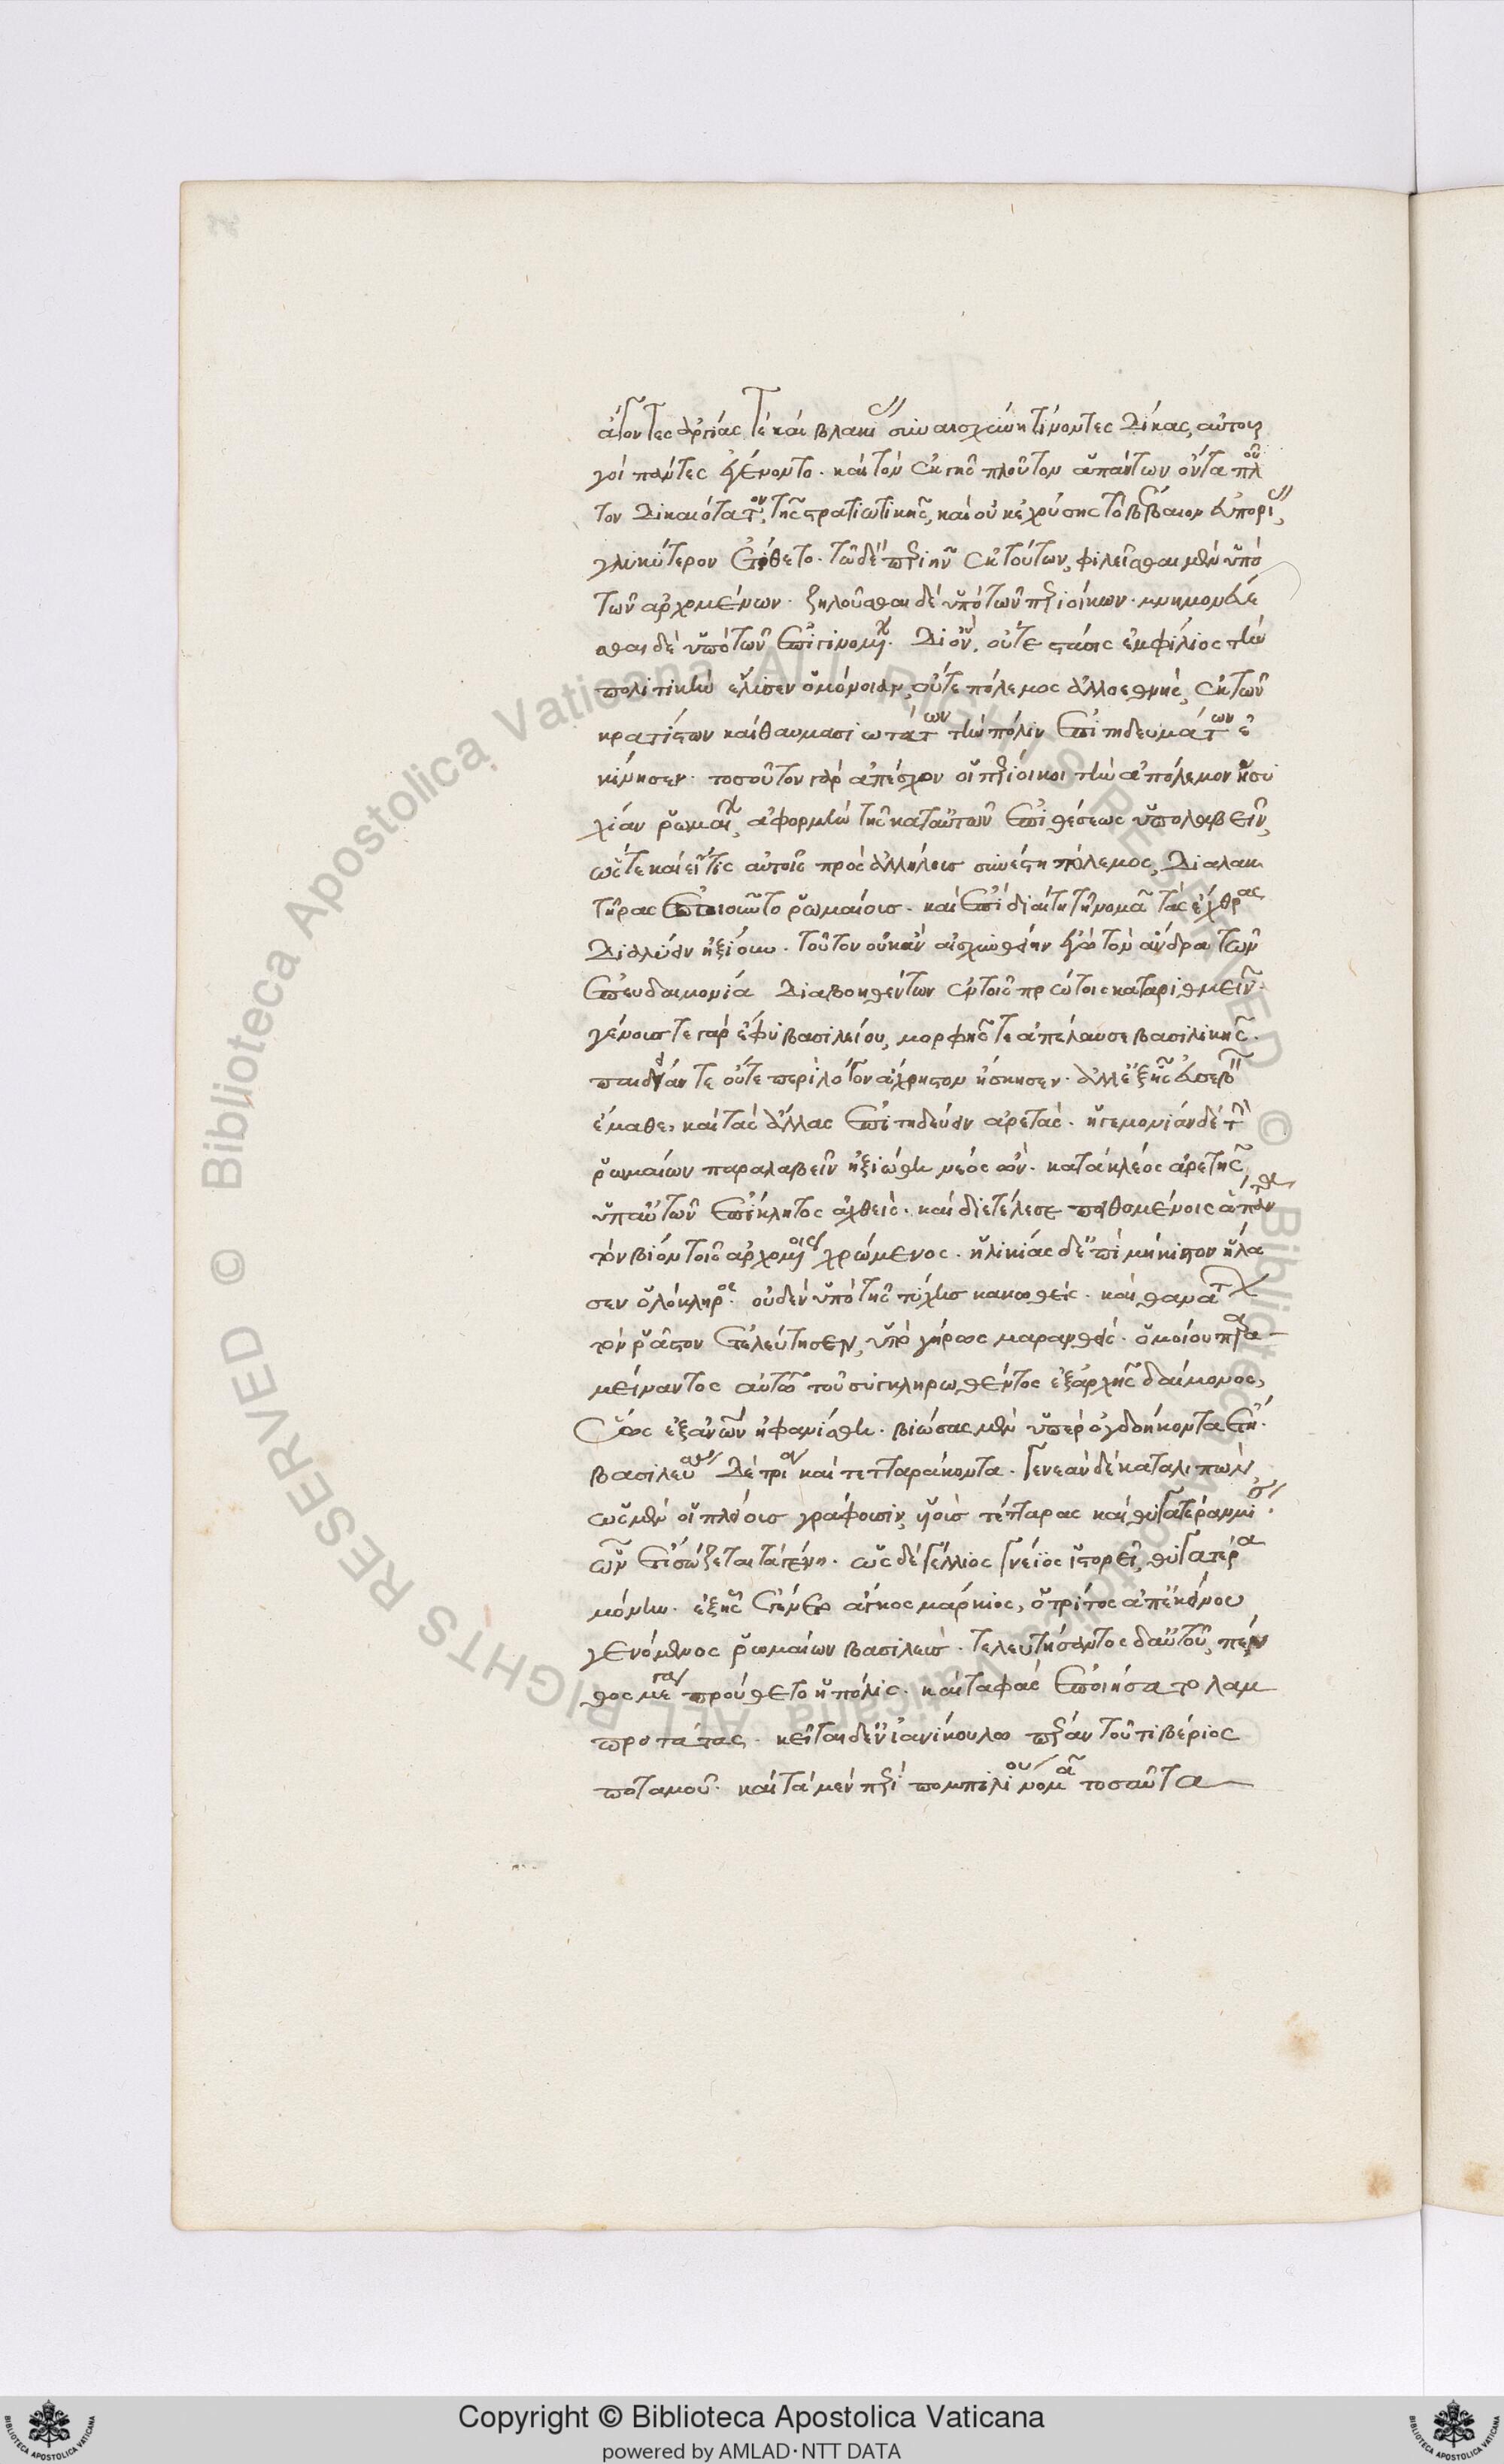 ἄγοντες ἀργίας τε καὶ βλακείας σὺν αἰσχύνῃ τίνοντες δίκας, αὐτουρ
γοὶ πάντες ἐγένοντο. καὶ τὸν ἐκ γῆς πλοῦτον ἁπάντων ὄντα πλού
των δικαιότατον, τῆς στρατιωτικῆς, καὶ οὐκ ἐχούσης τὸ βέβαιον εὐπορίας,
γλυκύτερον ἐτίθετο. τῷ δὲ περιῆν ἐκ τούτων, φιλεῖσθαι μὲν ὑπὸ
τῶν ἀρχομένων. ζηλοῦσθαι δὲ ὑπὸ τῶν περιοίκων. μνημονεύε
σθαι δὲ ὑπὸ τῶν ἐπιγινομένων. δι' ὧν, οὔτε στάσις ἐμφύλιος τὴν
πολιτικὴν ἔλυσεν ὁμόνοιαν, οὔτε πόλεμος ἀλλοεθνὴς, ἐκ τῶν
κρατίστων καὶ θαυμασιωτάτων τὴν πόλιν ἐπιτηδευμάτων ἐ
κίνησεν. τοσοῦτον γὰρ ἀπέσχον οἱ περίοικοι τὴν ἀπόλεμον ἡσυ
χίαν ῥωμαίων, ἀφορμὴν τῆς κατ' αὐτῶν ἐπιθέσεως ὑπολαβεῖν,
ὥστε καὶ εἴ τις αὐτοῖς πρὸς ἀλλήλους συνέστη πόλεμος, διαλλακ
τῆρας ἐποιοῦντο ῥωμαίους. καὶ ἐπὶ διαιτητῇ νομᾷ τὰς ἔχθρας
διαλύειν ἠξίουν. τοῦτον οὐκ ἂν αἰσχυνθείην ἐγὼ τὸν ἄνδρα τῶν
ἐπ' εὐδαιμονίᾳ διαβοηθέντων ἐν τοῖς πρώτοις καταριθμεῖν.
γένους τε γὰρ ἔφυ βασιλείου, μορφῆς τε ἀπέλαυσε βασιλικῆς.
παιδείαν τε οὔτε περὶ λόγον ἄχρηστον ἤσκησεν. ἀλλ' ἐξ ἧς εὐσεβεῖν
ἔμαθε, καὶ τὰς ἄλλας ἐπιτηδεύειν ἀρετάς. ἡγεμονίαν δὲ τὴν
ῥωμαίων παραλαβεῖν ἠξιώθη νέος ὤν. κατὰ κλέος ἀρετῆς,
ὑπ' αὐτῶν ἐπίκλητος ἀχθείς. καὶ διετέλεσε πειθομένοις ἅπαντα
τὸν βίον τοῖς ἀρχομένοις χρώμενος. ἡλικίας δ' ἐπὶ μήκιστον ἤλα
σεν ὁλόκληρος. οὐδὲν ὑπὸ τῆς τύχης κακωθείς. καὶ θανάτων
τὸν ῥᾷστον ἐτελεύτησεν, ὑπὸ γήρως μαρανθείς. ὁμοίου παρα
μείναντος αὐτῷ τοῦ συγκληρωθέντος ἐξ ἀρχῆς δαίμονος,
ἕως ἐξ ἀνθρώπων ἠφανίσθη. βιώσας μὲν ὑπὲρ ὀγδοήκοντα ἔτη.
βασιλεύσας δὲ τρία καὶ τετταράκοντα. γενεὰν δὲ καταλιπών,
ὡς μὲν οἱ πλείους γράφουσιν, υἱοὺς τέτταρας καὶ θυγατέρα μίαν.
ὧν ἔτι σώζεται τὰ γένη. ὡς δὲ γέλλιος γνέϊος ἱστορεῖ, θυγατέρα
μόνην. ἐξ ἧς ἐγένετο ἄγκος μάρκιος, ὁ τρίτος ἀπ' ἐκείνου
γενόμενος ῥωμαίων βασιλεύς. τελευτήσαντος δ' αὐτοῦ, πέν
θος μέγα προύθετο ἡ πόλις. καὶ ταφὰς ἐποιήσατο λαμ
προτάτας. κεῖται δ' ἐν ἰανικούλῳ πέραν τοῦ τιβέριος
ποταμοῦ. καὶ τὰ μὲν περὶ πομπιλίου νομᾶ τοσαῦτα
Copyright © Biblioteca Apostolica Vaticana
powered by AMLAD·NTT DATA